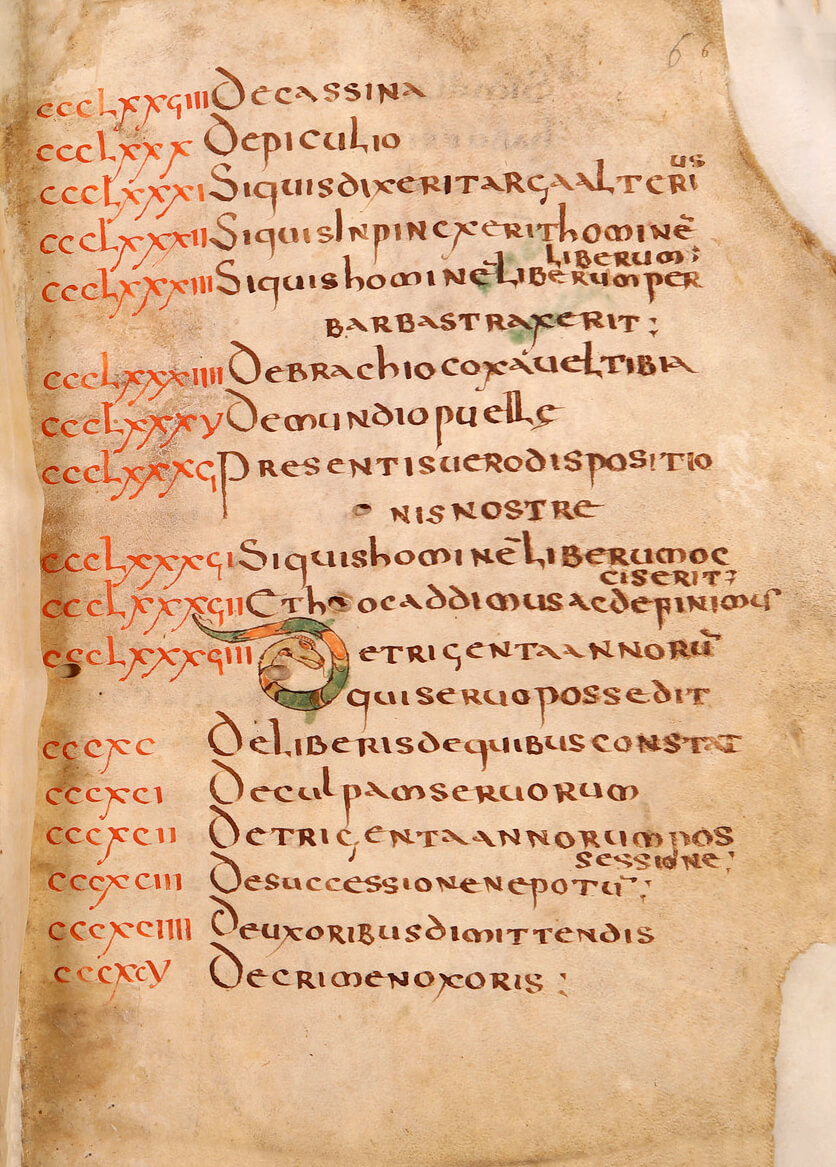 6 6
cccLxxϛiii De cassina
cccLxxx De piculio
cccLxxxi Si quis dixerit arga alteri
us
cccLxxxii Si quis inpincxerit hominē
liberum;
cccLxxxiii Si quis hominē liberum per
barbas traxerit;
cccLxxxiiii De brachio coxa uel tibia
cccLxxxv De mundio puellę
cccLxxxϛ Presentis uero dispositio
nis nostre
cccLxxxϛi Si quis hominē liberum oc
ciserit;
cccLxxxϛii Et hoc addimus ac definimus
cccLxxxϛiii De trigenta annorū
qui seruo possedit
cccxc De liberis de quibus constat
cccxci De culpam seruorum
cccxcii De trigenta annorum pos
sessione;
cccxciii De successione nepotū;
cccxciiii De uxoribus dimittendis
cccxcv De crimen oxoris;